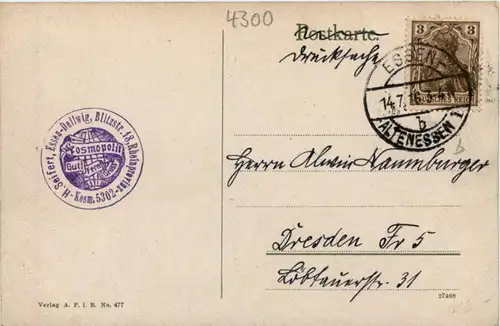 4300
Postkarte.
Drucksache
3
DEUTSCHES REICH
ESSEN-
14.7.16.
b
ALTENESSEN 1
H. Seifert, Essen-Dellwig, Blitzstr. 18, Rheinprovinz
Kosmopolit
Gut Ferngruss
Kosm. 5302
Herrn Alwin Naumburger
Dresden Fr 5
Löbtauerstr. 31
Verlag A. P. i. R. No. 477
27468